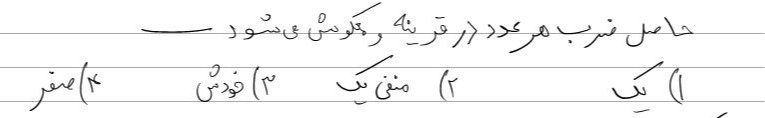 حاصل ضرب هر عدد در قرینه و معکوسش می شود ــــ
۱) یک ۲) منفی یک ۳) خودش ۴) صفر